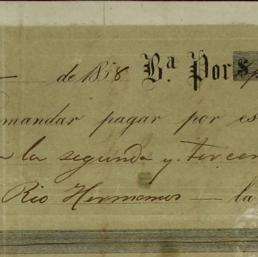 — de 1858 B.ª Por $
mandar pagar por es
la segunda y tercer
Rio Hermanos — la